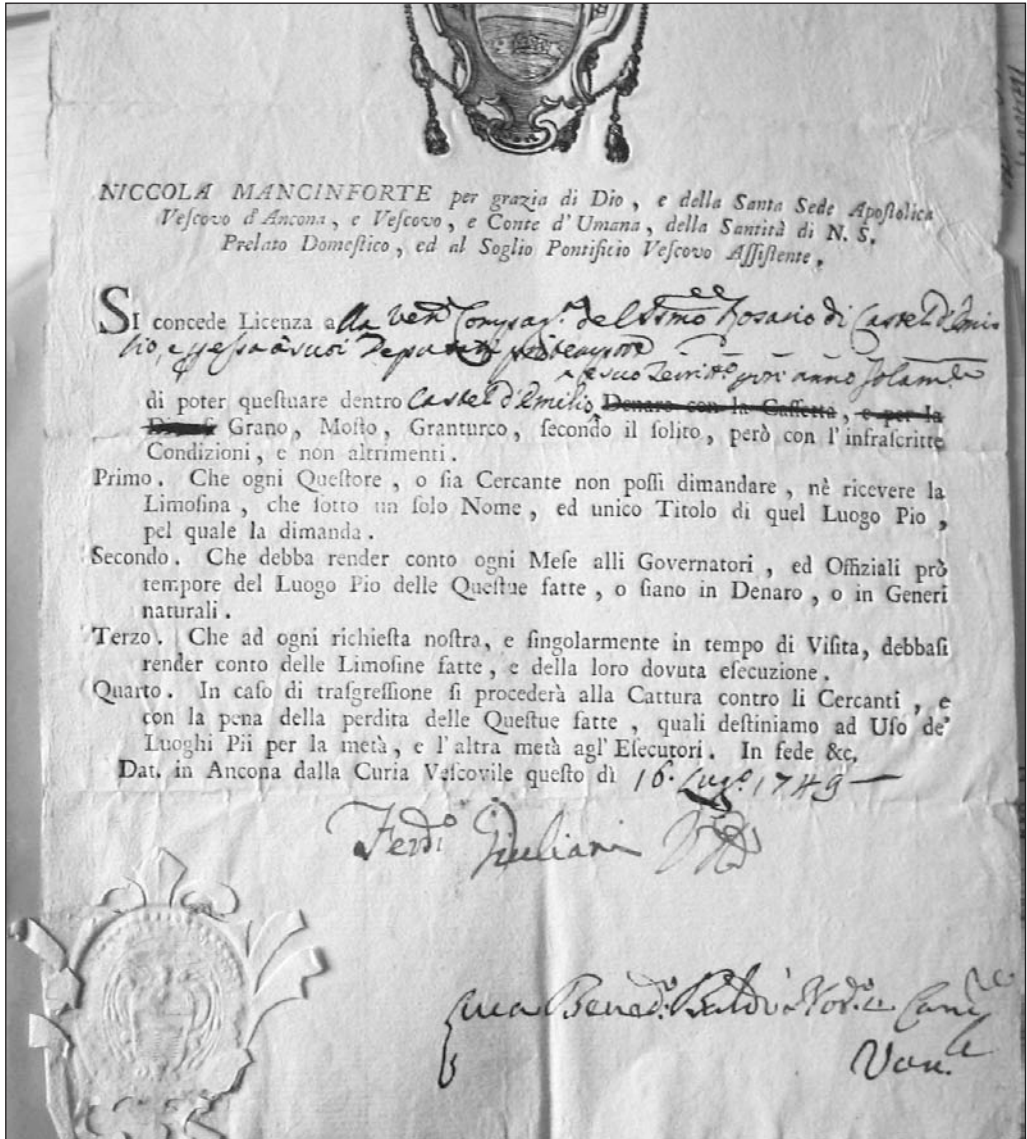 NICCOLA MANCINFORTE per grazia di Dio , e della Santa Sede Apoſtolica
Veſcovo d'Ancona , e Veſcovo , e Conte d'Umana , della Santità di N. S.
Prelato Domeſtico , ed al Soglio Pontificio Veſcovo Aſſiſtente .
SI concede Licenza alla Ven. Compag. del SSmo Rosario di Castel d'Emi
lio, e per essa à suoi Deputati pro tempore
e suo Territ.o per anno solam.te
di poter queſtuare dentro Castel d'Emilio Denaro con la Caſſetta , e per la
Grano , Moſto , Granturco , ſecondo il ſolito , però con l'infraſcritte
Condizioni , e non altrimenti .
Primo . Che ogni Queſtore , o ſia Cercante non poſſi dimandare , nè ricevere la
Limoſina , che ſotto un ſolo Nome , ed unico Titolo di quel Luogo Pio ,
pel quale la dimanda .
Secondo . Che debba render conto ogni Meſe alli Governatori , ed Offiziali prò
tempore del Luogo Pio delle Queſtue fatte , o ſiano in Denaro , o in Generi
naturali .
Terzo . Che ad ogni richieſta noſtra , e ſingolarmente in tempo di Viſita , debbaſi
render conto delle Limoſine fatte , e della loro dovuta eſecuzione .
Quarto . In caſo di traſgreſſione ſi procederà alla Cattura contro li Cercanti , e
con la pena della perdita delle Queſtue fatte , quali deſtiniamo ad Uſo de'
Luoghi Pii per la metà , e l'altra metà agl'Eſecutori . In fede &c.
Dat. in Ancona dalla Curia Veſcovile queſto dì 16. Lug.o 1749
Ferd.o Giuliani
Luca Bened.o Baldi